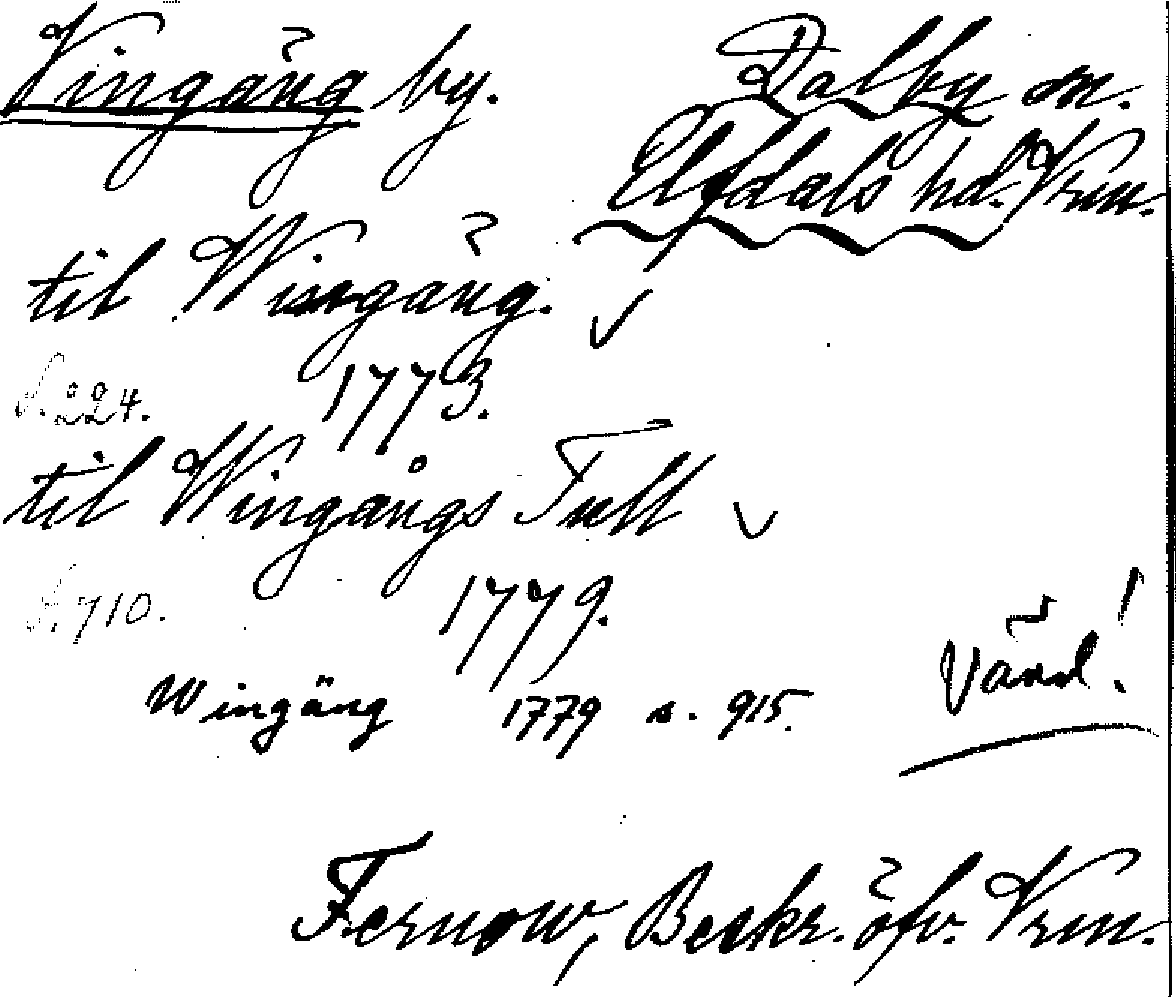 Vingäng by. Dalby sn.
Elfdals hd. Vrm.
til Wingäng. ✓
S. 224. 1773.
til Wingångs Tull ✓
S. 710. 1779.
Vänd!
Wingäng 1779 s. 915.
Fernow, Beskr. öfv. Vrm.